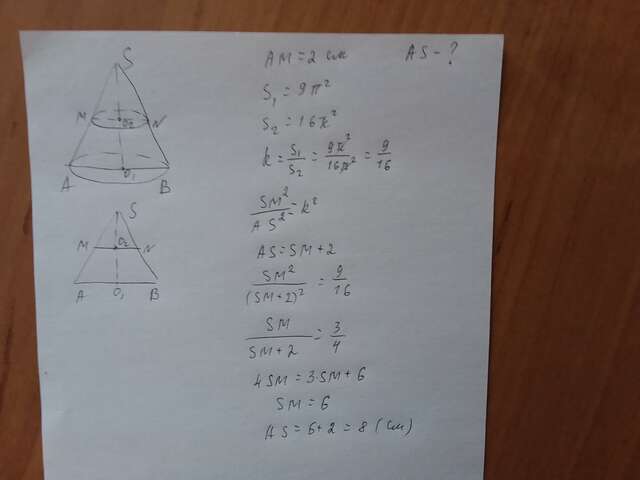 S
M O₂ N
A O₁ B
S
M O₂ N
A O₁ B
AM = 2 см AS - ?
S₁ = 9π²
S₂ = 16π²
k = S₁/S₂ = 9π²/16π² = 9/16
SM²/AS² = k²
AS = SM + 2
SM²/(SM+2)² = 9/16
SM/SM+2 = 3/4
4SM = 3·SM + 6
SM = 6
AS = 6 + 2 = 8 (см)